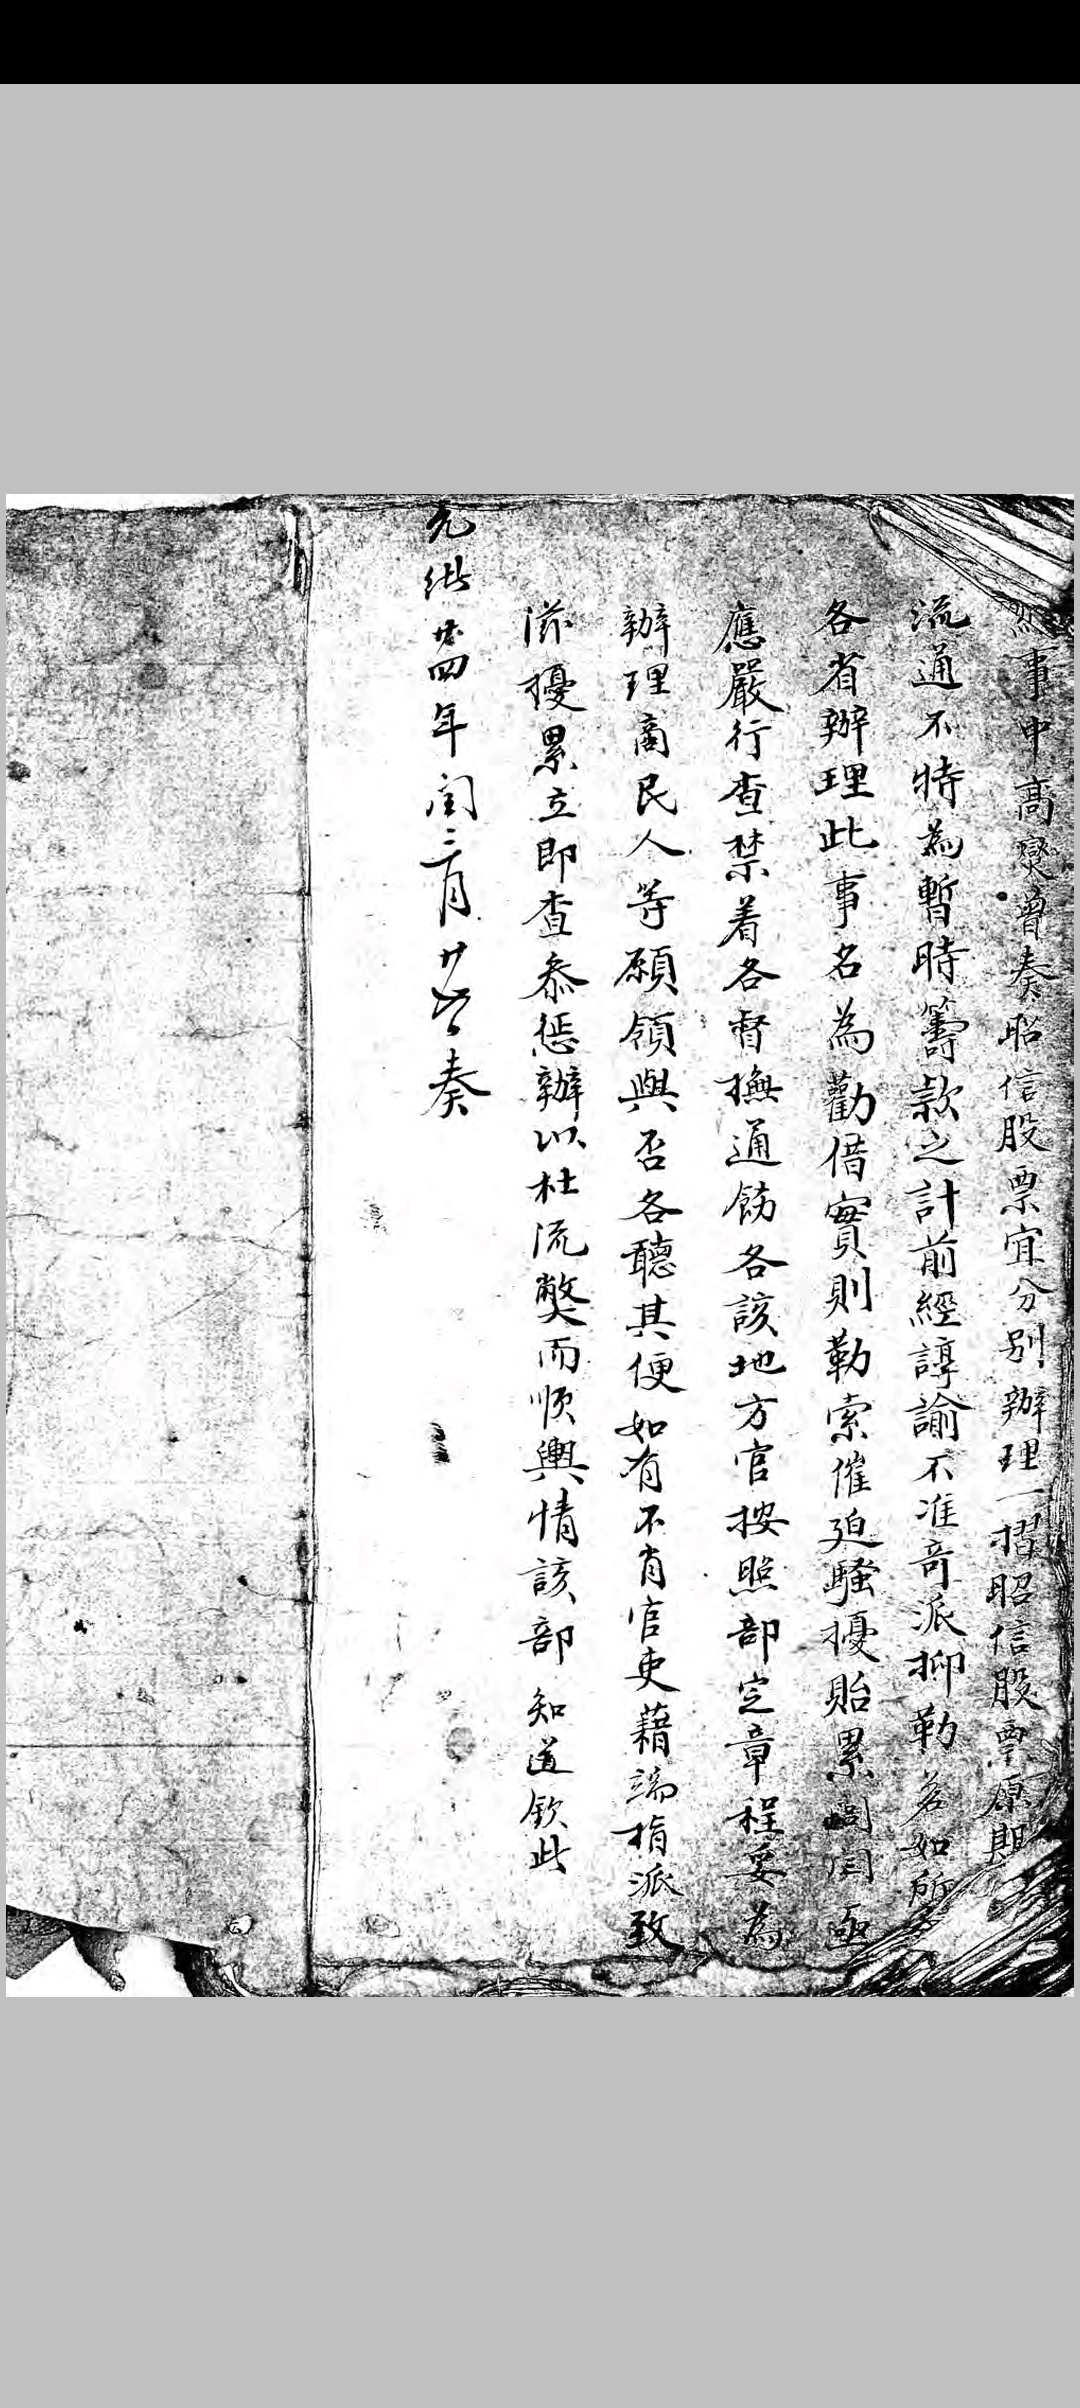 事中高燮曾奏昭信股票宜分別辦理一摺昭信股票原期
流通不特為暫時籌款之計前經諄諭不准苛派抑勒若如所
各省辦理此事名為勸借實則勒索催廹騷擾貽累閭閻亟
應嚴行查禁着各督撫通飭各該地方官按照部定章程妥為
辦理商民人等願領與否各聽其便如有不肖官吏藉端指派致
滋擾累立即查叅懲辦以杜流獘而順輿情該部知道欽此
光緒廿四年閏三月廿 奏